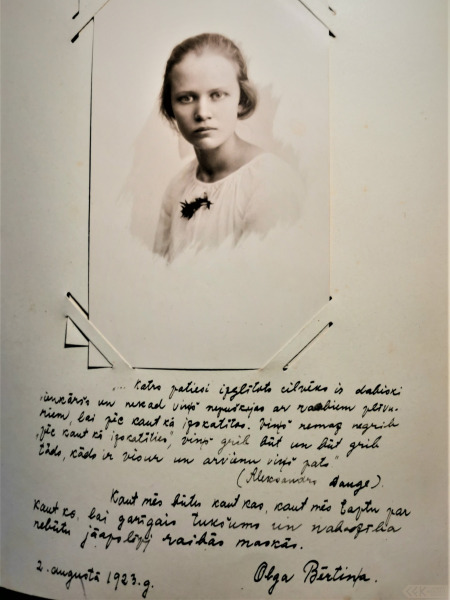 "... Katrs patiesi izglītots cilvēks ir dabiski
vienkāršs un nekad viņš nepušķojas ar raibiem plīvu-
riem, lai pēc kaut kā izskatītos. Viņš nemaz negrib
"pēc kaut kā izskatīties", viņš grib būt un būt grib
tāds, kāds ir visur un arvienu viņš pats"
(Aleksandrs Dauge).
Kaut mēs būtu kaut kas, kaut mēs taptu par
kaut ko, lai garīgais tukšums un nabadzība
nebūtu jāapslēpj raibās maskās.
2. augustā 1923. g. Olga Bērtiņa.